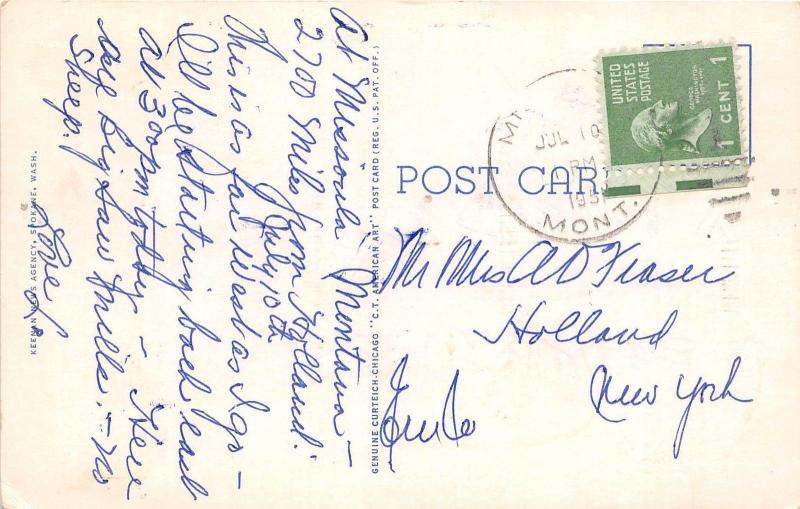 At Missoula Montana –
2700 Miles from Holland.
July 10th
This is as far West as I go –
I'll be starting back east
at 300 pm today – Here
are big saw mills. – no
Sheep.
Love
KEENAN NEWS AGENCY, SPOKANE, WASH.
GENUINE CURTEICH-CHICAGO "C.T. AMERICAN ART" POST CARD (REG. U.S. PAT. OFF.)
POST CARD
UNITED
STATES
POSTAGE
1 CENT 1
JUL 10
PM
195
MONT.
Mr Mrs A D Fraser
Holland
New York